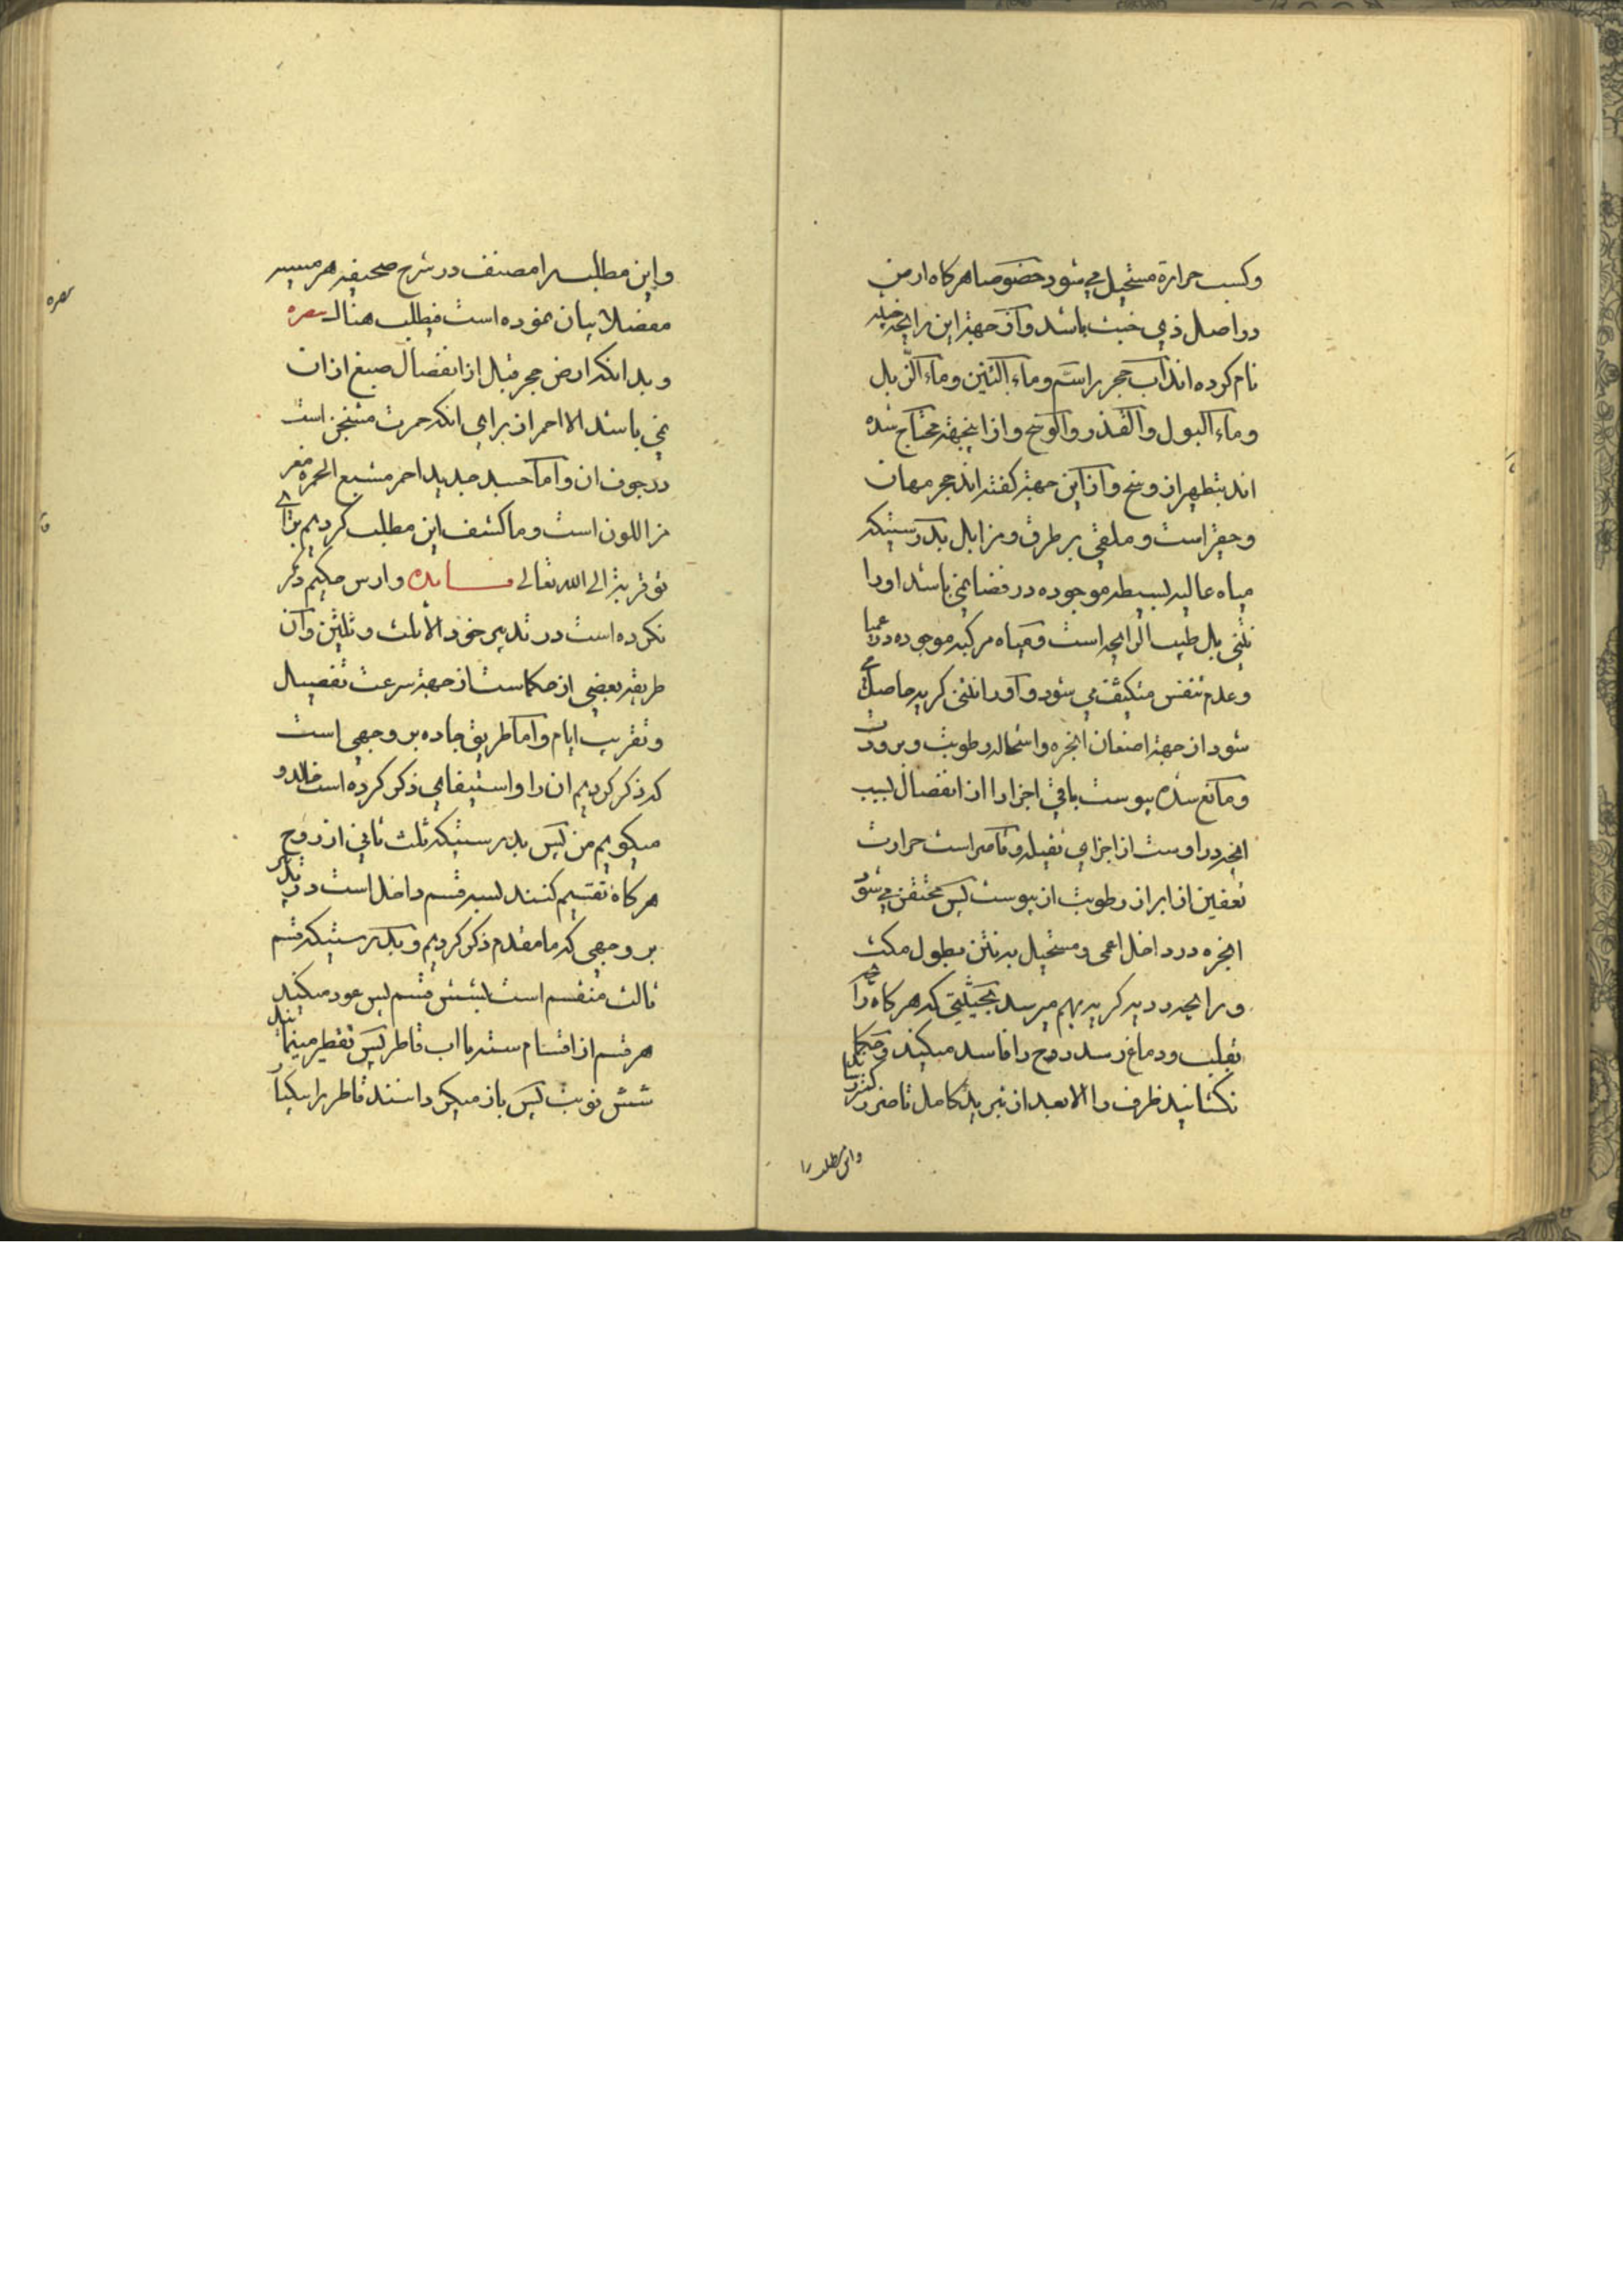 وکسب حرارة مستحیل می شود خصوصا هرکاه ارض
در اصل ذی خبث باشد و از جهة این رایحه خبیثه
نام کرده اند آب حجر را سم و ماء النتین و ماء الزبل
و ماء البول و القذر و الوسخ و از اینجهة محتاج شده
اند بتطهیر از وسخ و از این جهة کفته اند حجر مهان
و حقیر است و ملقی بر طرق و مزابل بدرستیکه
میاه عالیه بسیطه موجوده در فضا نمی باشد او را
نتنی بل طیب الرایحه است و میاه مرکبه موجوده در عمیا
و عدم تنفس متکیف می شود و او را نتنی کریه حاصل می
شود از جهة احتقان ابخره و استحاله رطوبت و برودت
و مانع شده یبوست باقی اجزا را از انفصال بسبب
انچه در اوست از اجزای ثقیله و قاصر است حرارت
تعفین از ابراز رطوبت از یبوست پس محتقن می شود
ابخره در داخل اعمی و مستحیل به نتن بطول مکث
و رایحه ردیه کریه بهم میرسد بحیثیتی که هرکاه رایحه
بقلب و دماغ رسد روح را فاسد میکند و حکما
نکشانید ظرف را الا بعد از تبرید کامل تا ضرر
واین مطلب را
واین مطلب را مصنف در شرح صحیفه هرمسیه
مفصلا بیان نموده است فیطلب هناک
و بدانکه ارض حجر قبل از انفصال صبغ از ان
نمی باشد الا احمر از برای انکه حمرت مستجن است
در جوف ان و اما جسد جدید احمر مشبع الحمره
من اللون است و ما کشف این مطلب کردیم برای
تو قربة الی الله تعالی فایده و ارس حکیم ذکر
نکرده است در تدبیر خود الا ثلث و ثلثین و آن
طریقه بعضی از حکماست از جهة سرعت تفصیل
و تقریب ایام و اما طریق جاده بر وجهی است
که ذکر کردیم ان را و استیفای ذکر کرده است خالد و
میکویم من پس بدرستیکه ثلث ثانی از روح
هرکاه تقسیم کنند بسه قسم داخل است در تدبیر
بر وجهی که ما مقدم ذکر کردیم و بدرستیکه قسم
ثالث منقسم است بشش قسم پس عود میکنند
هر قسم از اقسام سته با آب قاطر پس تقطیر مینمایند
شش نوبت پس باز میکر دانند قاطر را بیکبار